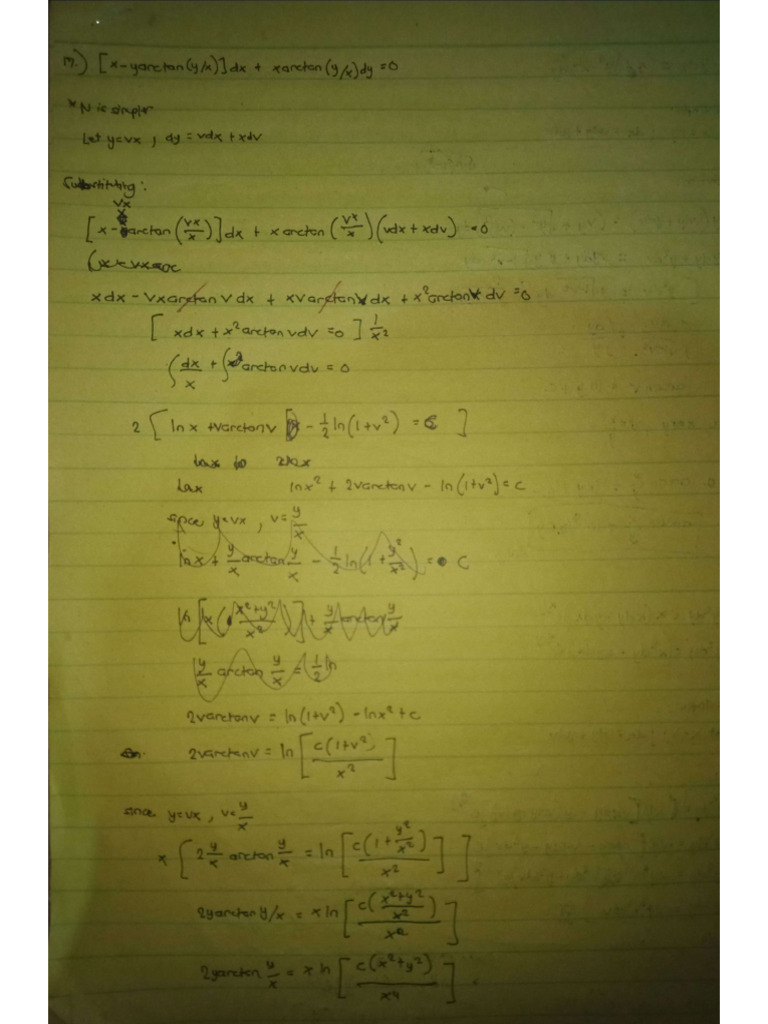 17.) [x-yarctan(y/x)]dx + xarctan(y/x)dy =0
*N is simpler
Let y=vx, dy = vdx + xdv
Substituting:
vx
[x - arctan(vx/x)]dx + x arctan(vx/x)(vdx + xdv) =0
xdx - vxarctan v dx + xv arctan v dx + x² arctan v dv =0
[xdx + x² arctan v dv =0] 1/x²
∫dx/x + ∫ arctan v dv = 0
2 [ln x + varctan v - 1/2 ln(1+v²) = C]
lnx² + 2varctanv - ln(1+v²) = c
since y=vx, v= y/x
lnx + y/x arctan y/x - 1/2 ln(1+ y²/x²) = C
ln[x( x²+y²/x²)] + y/x arctan y/x
y/x arctan y/x = 1/2 ln
2varctanv = ln(1+v²) - lnx² + c
2varctanv = ln[c(1+v²)/x²]
since y=vx, v= y/x
x [2 y/x arctan y/x = ln[c(1+ y²/x²)/x²]]
2yarctan y/x = x ln[c(x²+y²/x²)/x²]
2yarctan y/x = x ln[c(x²+y²)/x⁴]